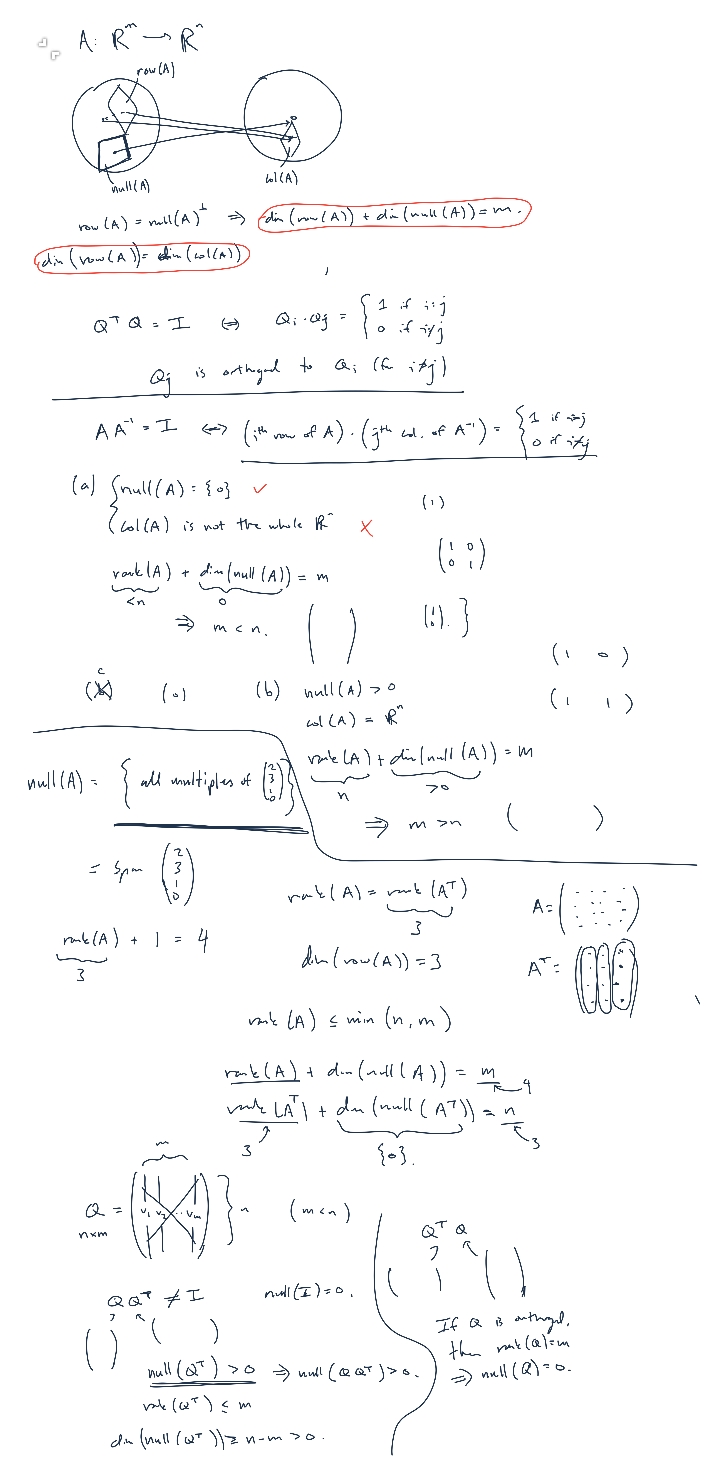 A: ℝ^m → ℝ^n
row(A)
null(A)
col(A)
row(A) = null(A)^⊥ ⇒ dim(row(A)) + dim(null(A)) = m.
dim(row(A)) = dim(col(A))
Q^T Q = I ⇔ Q_i · Q_j = { 1 if i=j
0 if i≠j
Q_j is orthogonal to Q_i (for i≠j)
A A^{-1} = I ↔ (i^th row of A) · (j^th col. of A^{-1}) = { 1 if i=j
0 if i≠j
(a) { null(A) = {0} ✓
col(A) is not the whole ℝ^n ✗
(1)
(1 0
0 1)
rank(A) + dim(null(A)) = m
<n 0
⇒ m < n. ( )
(c) (0)
(b) null(A) > 0
col(A) = ℝ^n
(1 0)
(1 1)
rank(A) + dim(null(A)) = m
n >0
⇒ m > n ( )
null(A) = { all multiples of (2 3 1 0) }
= span (2 3 1 0)
rank(A) + 1 = 4
3
rank(A) = rank(A^T)
3
dim(row(A)) = 3
A = ( )
A^T = ( )
rank(A) ≤ min(n, m)
rank(A) + dim(null(A)) = m ← 4
rank(A^T) + dim(null(A^T)) = n ← 3
3 {0}.
m
Q = ( v_1 v_2 ... v_m ) } n (m<n)
n×m
Q Q^T ≠ I null(I) = 0.
( ) ( )
null(Q^T) > 0 ⇒ null(QQ^T) > 0.
rank(Q^T) ≤ m
dim(null(Q^T)) ≥ n-m > 0.
Q^T Q
( ) ( )
If Q is orthogonal,
then rank(Q)=m
⇒ null(Q)=0.